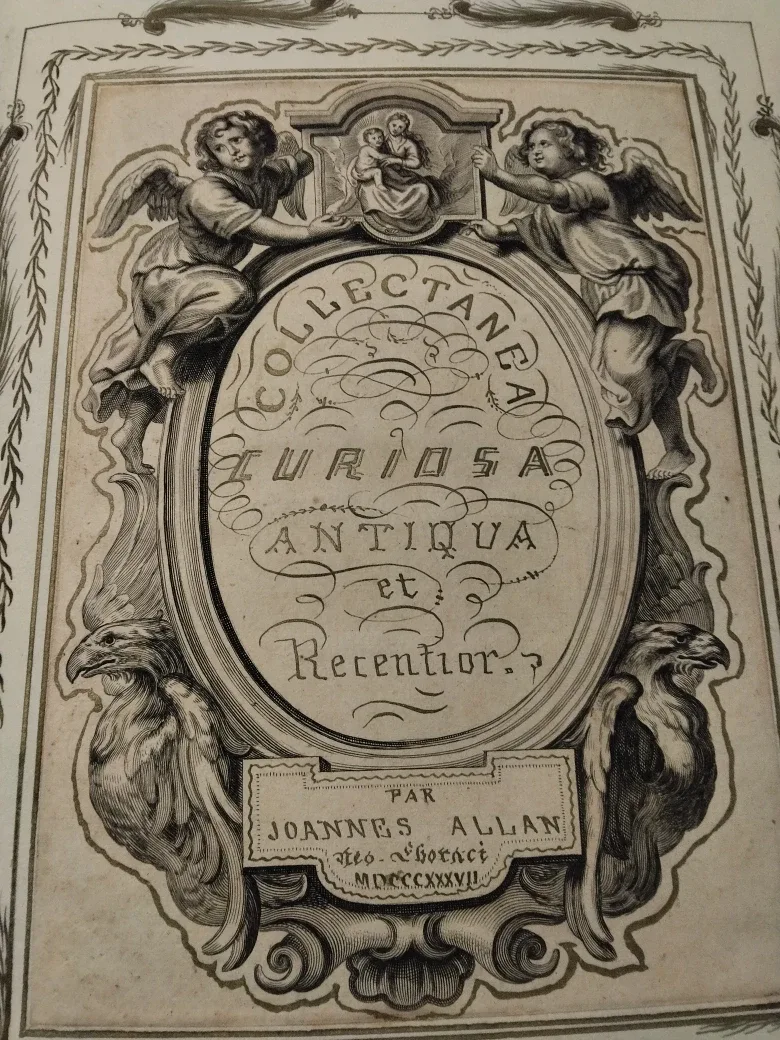 COLLECTANEA
CURIOSA
ANTIQUA
et
Recentior.
PAR
JOANNES ALLAN
Neo-Eboraci
MDCCCXXXVII